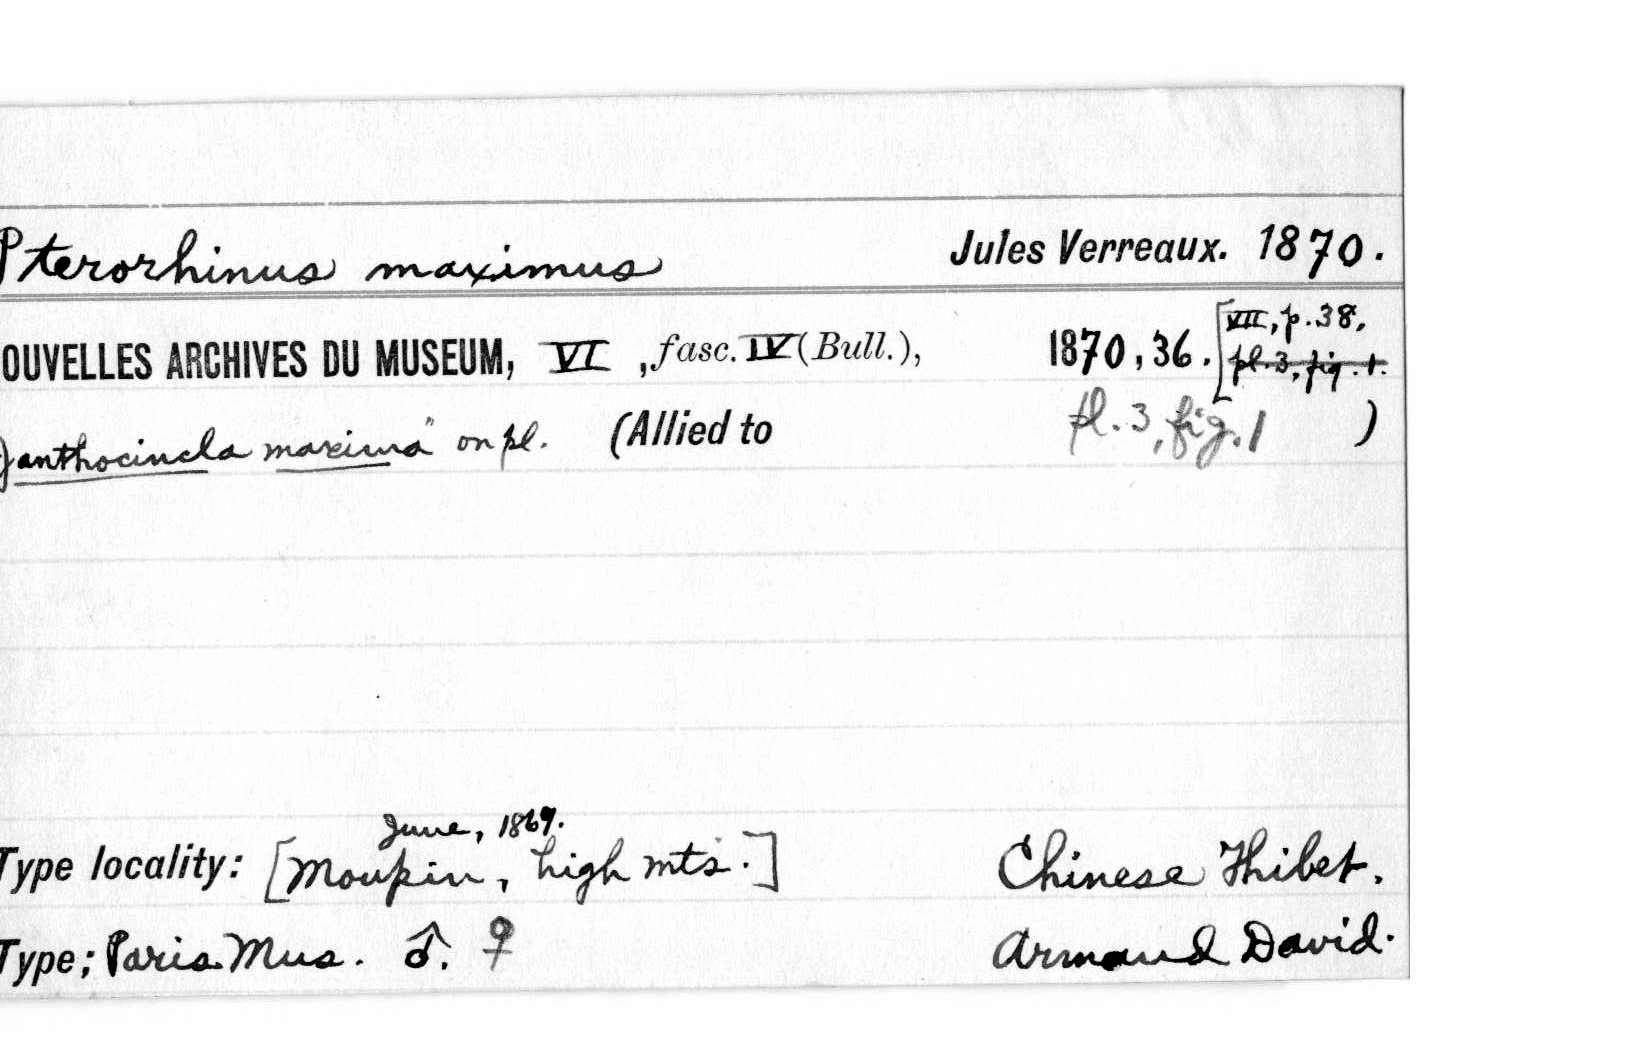 Pterorhinus maximus Jules Verreaux. 1870.
OUVELLES ARCHIVES DU MUSEUM, VI, fasc. IV (Bull.), 1870, 36. [VII, p. 38,
pl. 3, fig. 1.
Janthocincla maxima" on pl. (Allied to pl. 3, fig. 1 )
June, 1869.
Type locality: [Moupin, high mts.] Chinese Thibet.
Type; Paris Mus. ♂. ♀ Armand David.